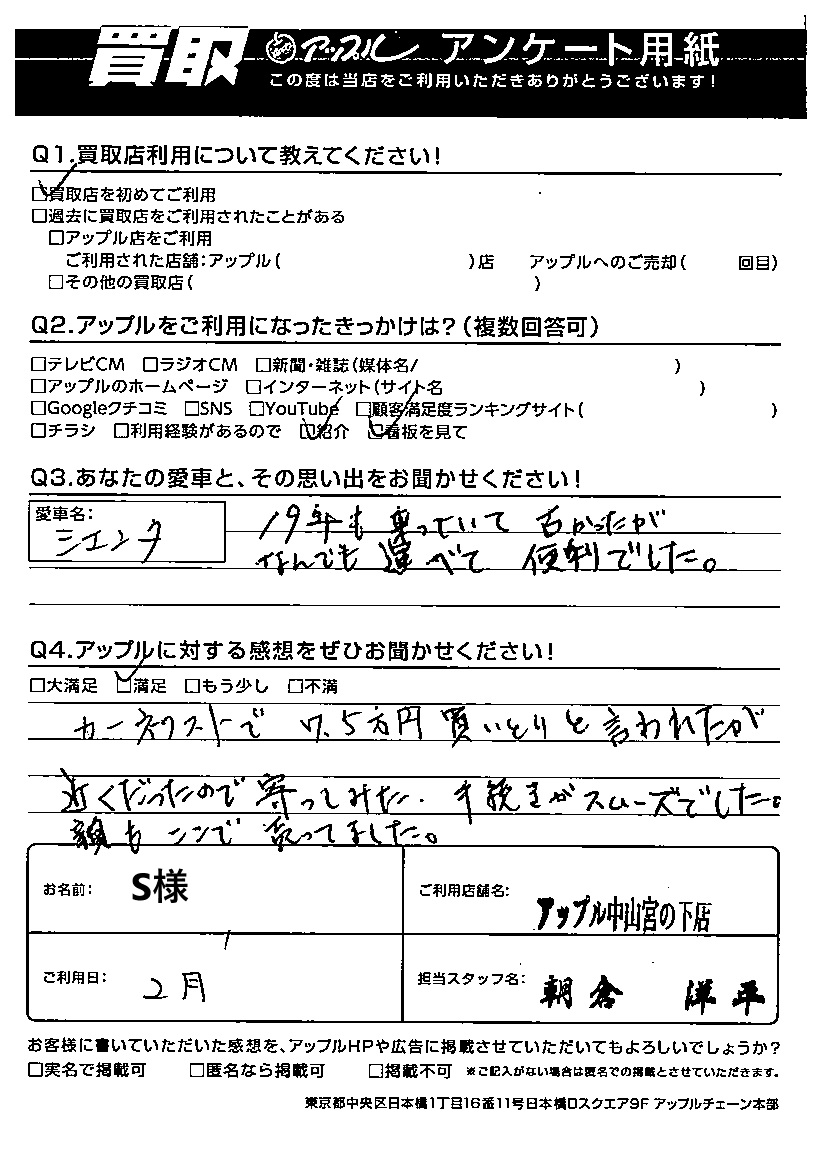 買取 アップル アンケート用紙
この度は当店をご利用いただきありがとうございます!
Q1.買取店利用について教えてください!
☑買取店を初めてご利用
□過去に買取店をご利用されたことがある
□アップル店をご利用
ご利用された店舗:アップル( )店 アップルへのご売却( 回目)
□その他の買取店( )
Q2.アップルをご利用になったきっかけは?(複数回答可)
□テレビCM □ラジオCM □新聞・雑誌(媒体名/ )
□アップルのホームページ □インターネット(サイト名 )
□Googleクチコミ □SNS □YouTube □顧客満足度ランキングサイト( )
□チラシ □利用経験があるので ☑紹介 ☑看板を見て
Q3.あなたの愛車と、その思い出をお聞かせください!
愛車名:
シエンタ
19年も乗っていて 古かったが
なんでも運べて 便利でした。
Q4.アップルに対する感想をぜひお聞かせください!
□大満足 ☑満足 □もう少し □不満
カーネクストで 7.5万円買いとりと言われたが
近くだったので寄ってみた. 手続きがスムーズでした。
額も ここで 売ってました。
お名前: S様
ご利用店舗名: アップル中山宮の下店
ご利用日: 2月
担当スタッフ名: 朝倉 洋平
お客様に書いていただいた感想を、アップルHPや広告に掲載させていただいてもよろしいでしょうか?
□実名で掲載可 □匿名なら掲載可 □掲載不可 ※ご記入がない場合は匿名での掲載とさせていただきます。
東京都中央区日本橋1丁目16番11号日本橋Dスクエア9F アップルチェーン本部